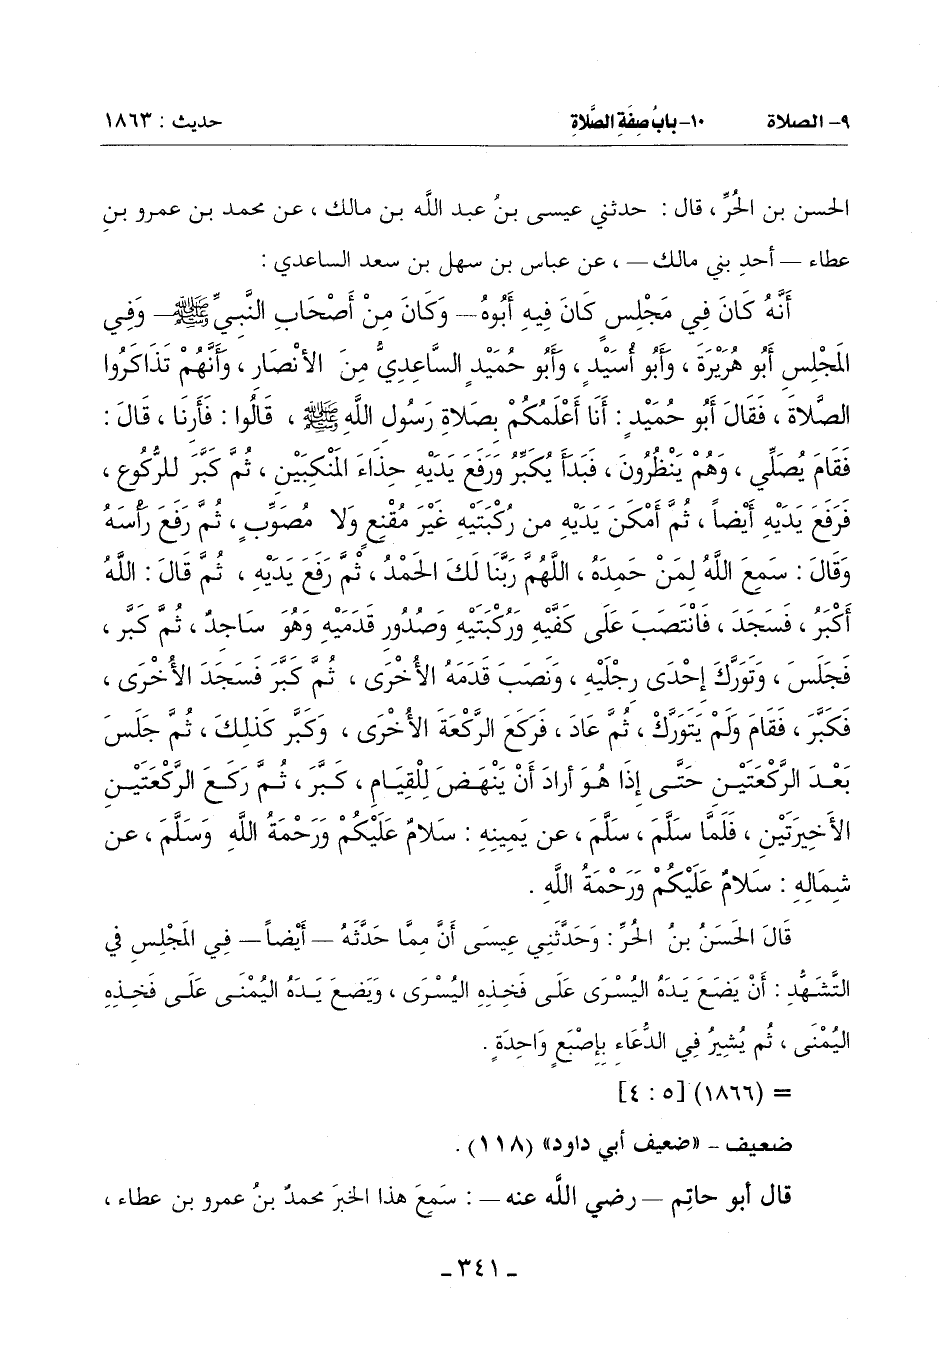 ٩- الصلاة ١٠- بابُ صِفَةِ الصَّلاةِ حديث : ١٨٦٣
الحسن بن الحُرِّ ، قال : حدثني عيسى بنُ عبد اللَّه بن مالك ، عن محمد بن عمرو بنِ
عطاء – أحدِ بني مالك – ، عن عباس بن سهل بن سعد الساعدي :
أَنَّهُ كَانَ فِي مَجْلِسٍ كَانَ فِيهِ أَبُوهُ – وَكَانَ مِنْ أَصْحَابِ النَّبِيِّ ﷺ – وَفِي
المَجْلِسِ أَبُو هُرَيْرَةَ ، وَأَبُو أُسَيْدٍ ، وَأَبُو حُمَيْدٍ السَّاعِدِيُّ مِنَ الأَنْصَارِ ، وَأَنَّهُمْ تَذَاكَرُوا
الصَّلاةَ ، فَقَالَ أَبُو حُمَيْدٍ : أَنَا أَعْلَمُكُمْ بِصَلاةِ رَسُولِ اللَّهِ ﷺ ، قَالُوا : فَأَرِنَا ، قَالَ :
فَقَامَ يُصَلِّي ، وَهُمْ يَنْظُرُونَ ، فَبَدَأَ يُكَبِّرُ وَرَفَعَ يَدَيْهِ حِذَاءَ المَنْكِبَيْنِ ، ثُمَّ كَبَّرَ لِلرُّكُوعِ ،
فَرَفَعَ يَدَيْهِ أَيْضاً ، ثُمَّ أَمْكَنَ يَدَيْهِ مِن رُكْبَتَيْهِ غَيْرَ مُقْنِعٍ وَلا مُصَوِّبٍ ، ثُمَّ رَفَعَ رَأْسَهُ
وَقَالَ : سَمِعَ اللَّهُ لِمَنْ حَمِدَهُ ، اللَّهُمَّ رَبَّنَا لَكَ الحَمْدُ ، ثُمَّ رَفَعَ يَدَيْهِ ، ثُمَّ قَالَ : اللَّهُ
أَكْبَرُ ، فَسَجَدَ ، فَانْتَصَبَ عَلَى كَفَّيْهِ وَرُكْبَتَيْهِ وَصُدُورِ قَدَمَيْهِ وَهُوَ سَاجِدٌ ، ثُمَّ كَبَّرَ ،
فَجَلَسَ ، وَتَوَرَّكَ إِحْدَى رِجْلَيْهِ ، وَنَصَبَ قَدَمَهُ الأُخْرَى ، ثُمَّ كَبَّرَ فَسَجَدَ الأُخْرَى ،
فَكَبَّرَ ، فَقَامَ وَلَمْ يَتَوَرَّكْ ، ثُمَّ عَادَ ، فَرَكَعَ الرَّكْعَةَ الأُخْرَى ، وَكَبَّرَ كَذلِكَ ، ثُمَّ جَلَسَ
بَعْدَ الرَّكْعَتَيْنِ حَتَّى إِذَا هُوَ أَرادَ أَنْ يَنْهَضَ لِلْقِيَامِ ، كَبَّرَ ، ثُمَّ رَكَعَ الرَّكْعَتَيْنِ
الأَخِيرَتَيْنِ ، فَلَمَّا سَلَّمَ ، سَلَّمَ ، عن يَمِينِهِ : سَلامٌ عَلَيْكُمْ وَرَحْمَةُ اللَّهِ وَسَلَّمَ ، عن
شِمَالِهِ : سَلامٌ عَلَيْكُمْ وَرَحْمَةُ اللَّهِ .
قَالَ الحَسَنُ بنُ الحُرِّ : وَحَدَّثَنِي عِيسَى أَنَّ مِمَّا حَدَّثَهُ – أَيْضاً – فِي المَجْلِسِ في
التَّشَهُّدِ : أَنْ يَضَعَ يَدَهُ اليُسْرَى عَلَى فَخِذِهِ اليُسْرَى ، وَيَضَعَ يَدَهُ اليُمْنَى عَلَى فَخِذِهِ
اليُمْنَى ، ثُم يُشِيرُ فِي الدُّعَاءِ بِإِصْبَعٍ وَاحِدَةٍ .
= (١٨٦٦) [٥ : ٤]
ضعيف – «ضعيف أبي داود» (١١٨) .
قال أبو حاتِم – رضي اللَّه عنه – : سَمِعَ هذا الخبَرَ محمدُ بنُ عمرو بن عطاء ،
– ٣٤١ –